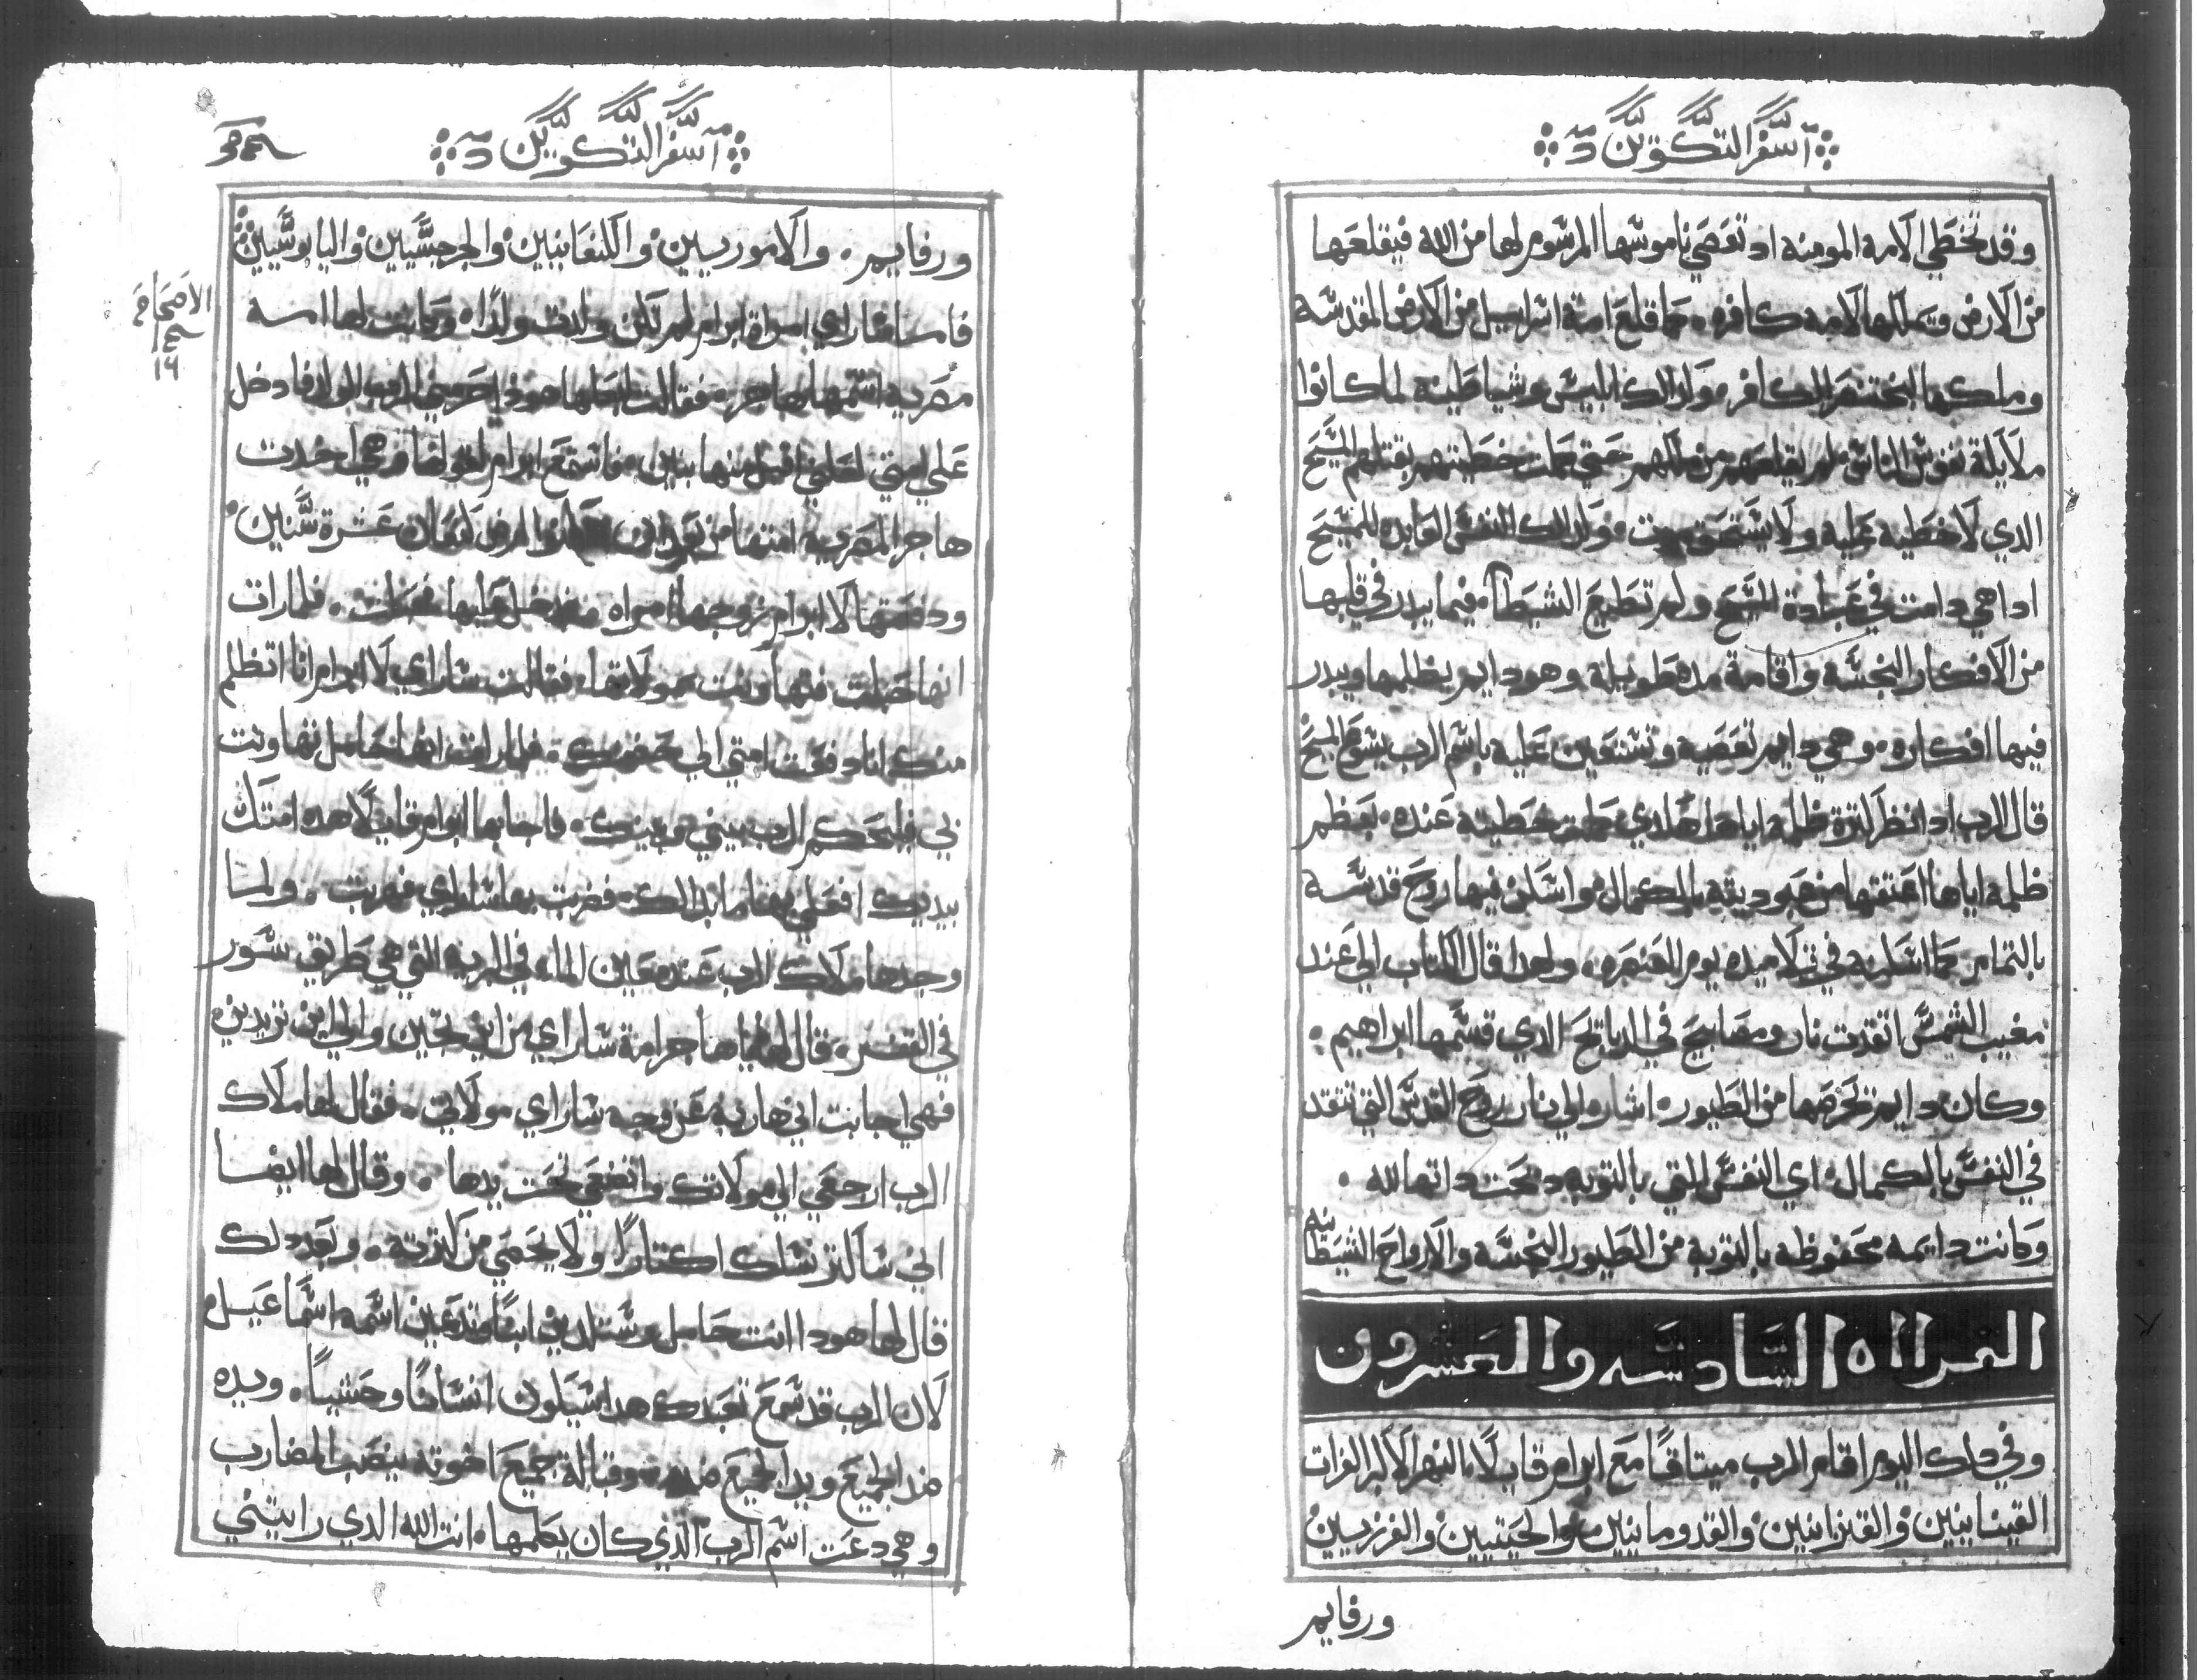 سفر التكوين
وقد تخطي الامه المومنه اد تعصي ناموسها المرسوم لها من الله فيقلعها
من الارض ويملكها لامه كافره، كما قلع امة اسراييل من الارض المقدسه
وملكها البختنصر الكافر، ولدلك ابليس وشياطينه لما كانوا
نفوس الناس لم يقلعهم من ملكهم حتي كملت خطيتهم بقتلهم المسيح
الدي لا خطيه عليه ولا يستحق موت، ولدلك النفس العابده للمسيح
اداهي دامت في عبادة المسيح ولم تطيع الشيطان فيما يبدر في قلبها
من الافكار النجسه واقامة مده طويله وهو دايم يظلمها ويبدر
فيها افكاره، وهي دايم تعصيه وتستعين عليه باسم الرب يسوع المسيح
قال الرب اد انظر لترة ظلمه اياها كملت خطيته عنده، بعظم
ظلمه اياها اعتقها من عبوديته بالكمال واسكن فيها روح قدسه
بالتمام كما اسكنه في تلاميده يوم العنصره، ولهدا قال الكتاب الي عند
مغيب الشمس اتقدت نار ومصابيح في الدبايح الدي قسمها ابراهيم.
وكان دايم تحرصها من الطيور، اشاره الي نار روح القدس التي تتقد
في النفس بالكمال، اي النفس التي بالتوبه دبحت داتها لله.
وكانت دايمه محفوظه بالتوبه من الطيور النجسه والارواح الشيطانيه
القراه السادسه والعشرون
وفي دلك اليوم اقام الرب ميتاقًا مع ابرام قايلًا، النهر الاكبر الفرات
القينانيين والقنزانيين والقدومانيين والحيتيين والفرزيسين
ورفايم
سفر التكوين
ورفايم. والاموريسين والكنعانيين والجرجسيين واليابوسيين
الاصحاح
١٦
فاما ساراي امراة ابرام لم تكن ولدت ولدًا، وكانت لها امه
مصريه اسمها هاجر، فقالت لبعلها هودا احرمني الرب الولد فادخل
علي امتي لعلني اقبل منها بنين، فاستمع ابرام لقولها وهي اخدت
هاجر المصريه امتها من بعد ارض كنعان عشرة سنين
ودفعتها لابرام زوجها امراه فدخل عليها فحبلت. فلما رات
انها حبلت فتهاونت بمولاتها، فقالت ساراي لابرام انا اتظلم
منك انا دفعت امتي الي حضنك، فلما رات انها حامل تهاونت
بي فليحكم الرب بيني وبينك. فاجابها ابرام قايلًا هده امتك
بيديك افعلي بها ما بدالك، فضرت بها ساراي فهربت. ولما
وجدها ملاك الرب عند معين الماء في البريه التي هي طريق سور
في القفر، قال لها يا هاجر امة ساراي من اين تجين والي اين تريدين
فهي اجابت اني هاربه عن وجه ساراي مولاتي، فقال لها ملاك
الرب ارجعي الي مولاتك واتضعي تحت يدها. وقال لها ايضا
اني ساكتر نسلك اكتارًا ولا يحصي من كترته، وبعد دلك
قال لها هودا انت حامل وستلدين ابنًا وتدعين اسمه اسماعيل
لان الرب قد سمع تعبدك هدا سيكون انسانًا وحشيًا. ويده
ضد الجميع ويد الجميع ضده وقبالة جميع اخوته ينصب المضارب
وهي دعت اسم الرب الذي كان يكلمها، انت الله الدي رايتني